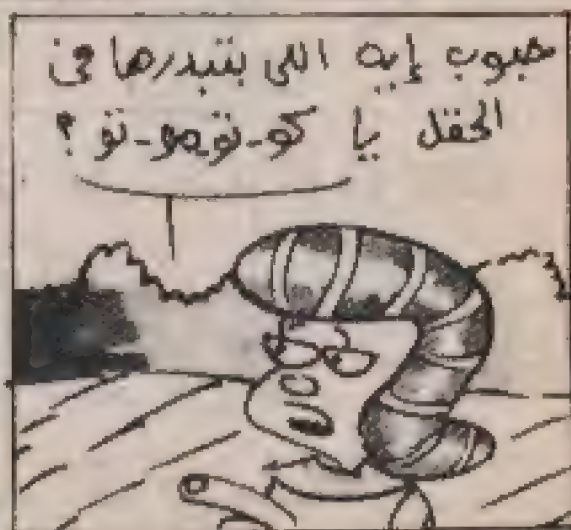 حبوب إيه اللى بتبدرها فى
الحقل يا كو-تو-مو-تو ؟